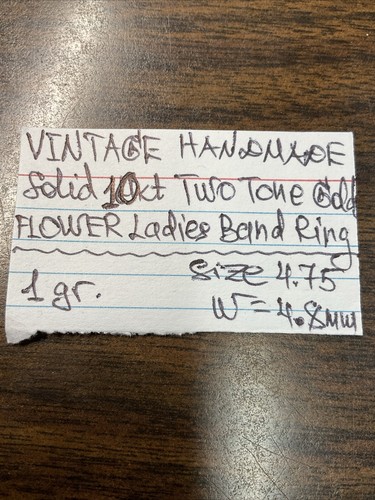 VINTAGE HANDMADE
Solid 10kt Two Tone Gold
FLOWER Ladies Band Ring
Size 4.75
1 gr.
W = 4.8mm